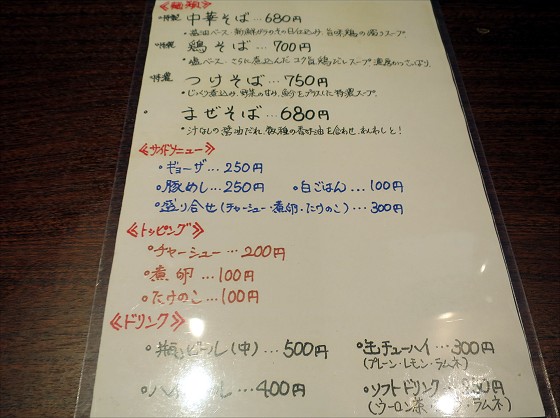 ≪麺類≫
・特製 中華そば…680円
・醤油ベース 新鮮ガラのその日仕込み、旨味鶏の濁りスープ。
鶏そば…700円
・塩ベース さらに煮込んだコク旨鶏だしスープ
・特濃 つけそば…750円
・じっくり煮込み、野菜の甘み、魚介をプラスした特濃スープ。
まぜそば…680円
・汁なしの醤油だれ、数種の香味油を合わせ、わしわしと!
≪サイドメニュー≫
・ギョーザ…250円
・豚めし…250円 ・白ごはん…100円
・盛り合せ(チャーシュー・煮卵・たけのこ)…300円
≪トッピング≫
・チャーシュー…200円
・煮卵…100円
・たけのこ…100円
≪ドリンク≫
・瓶ビール(中)…500円 ・缶チューハイ…300円
(プレーン・レモン・ラムネ)
・ハイボール…400円 ・ソフトドリンク…250円
(ウーロン茶・ラムネ)